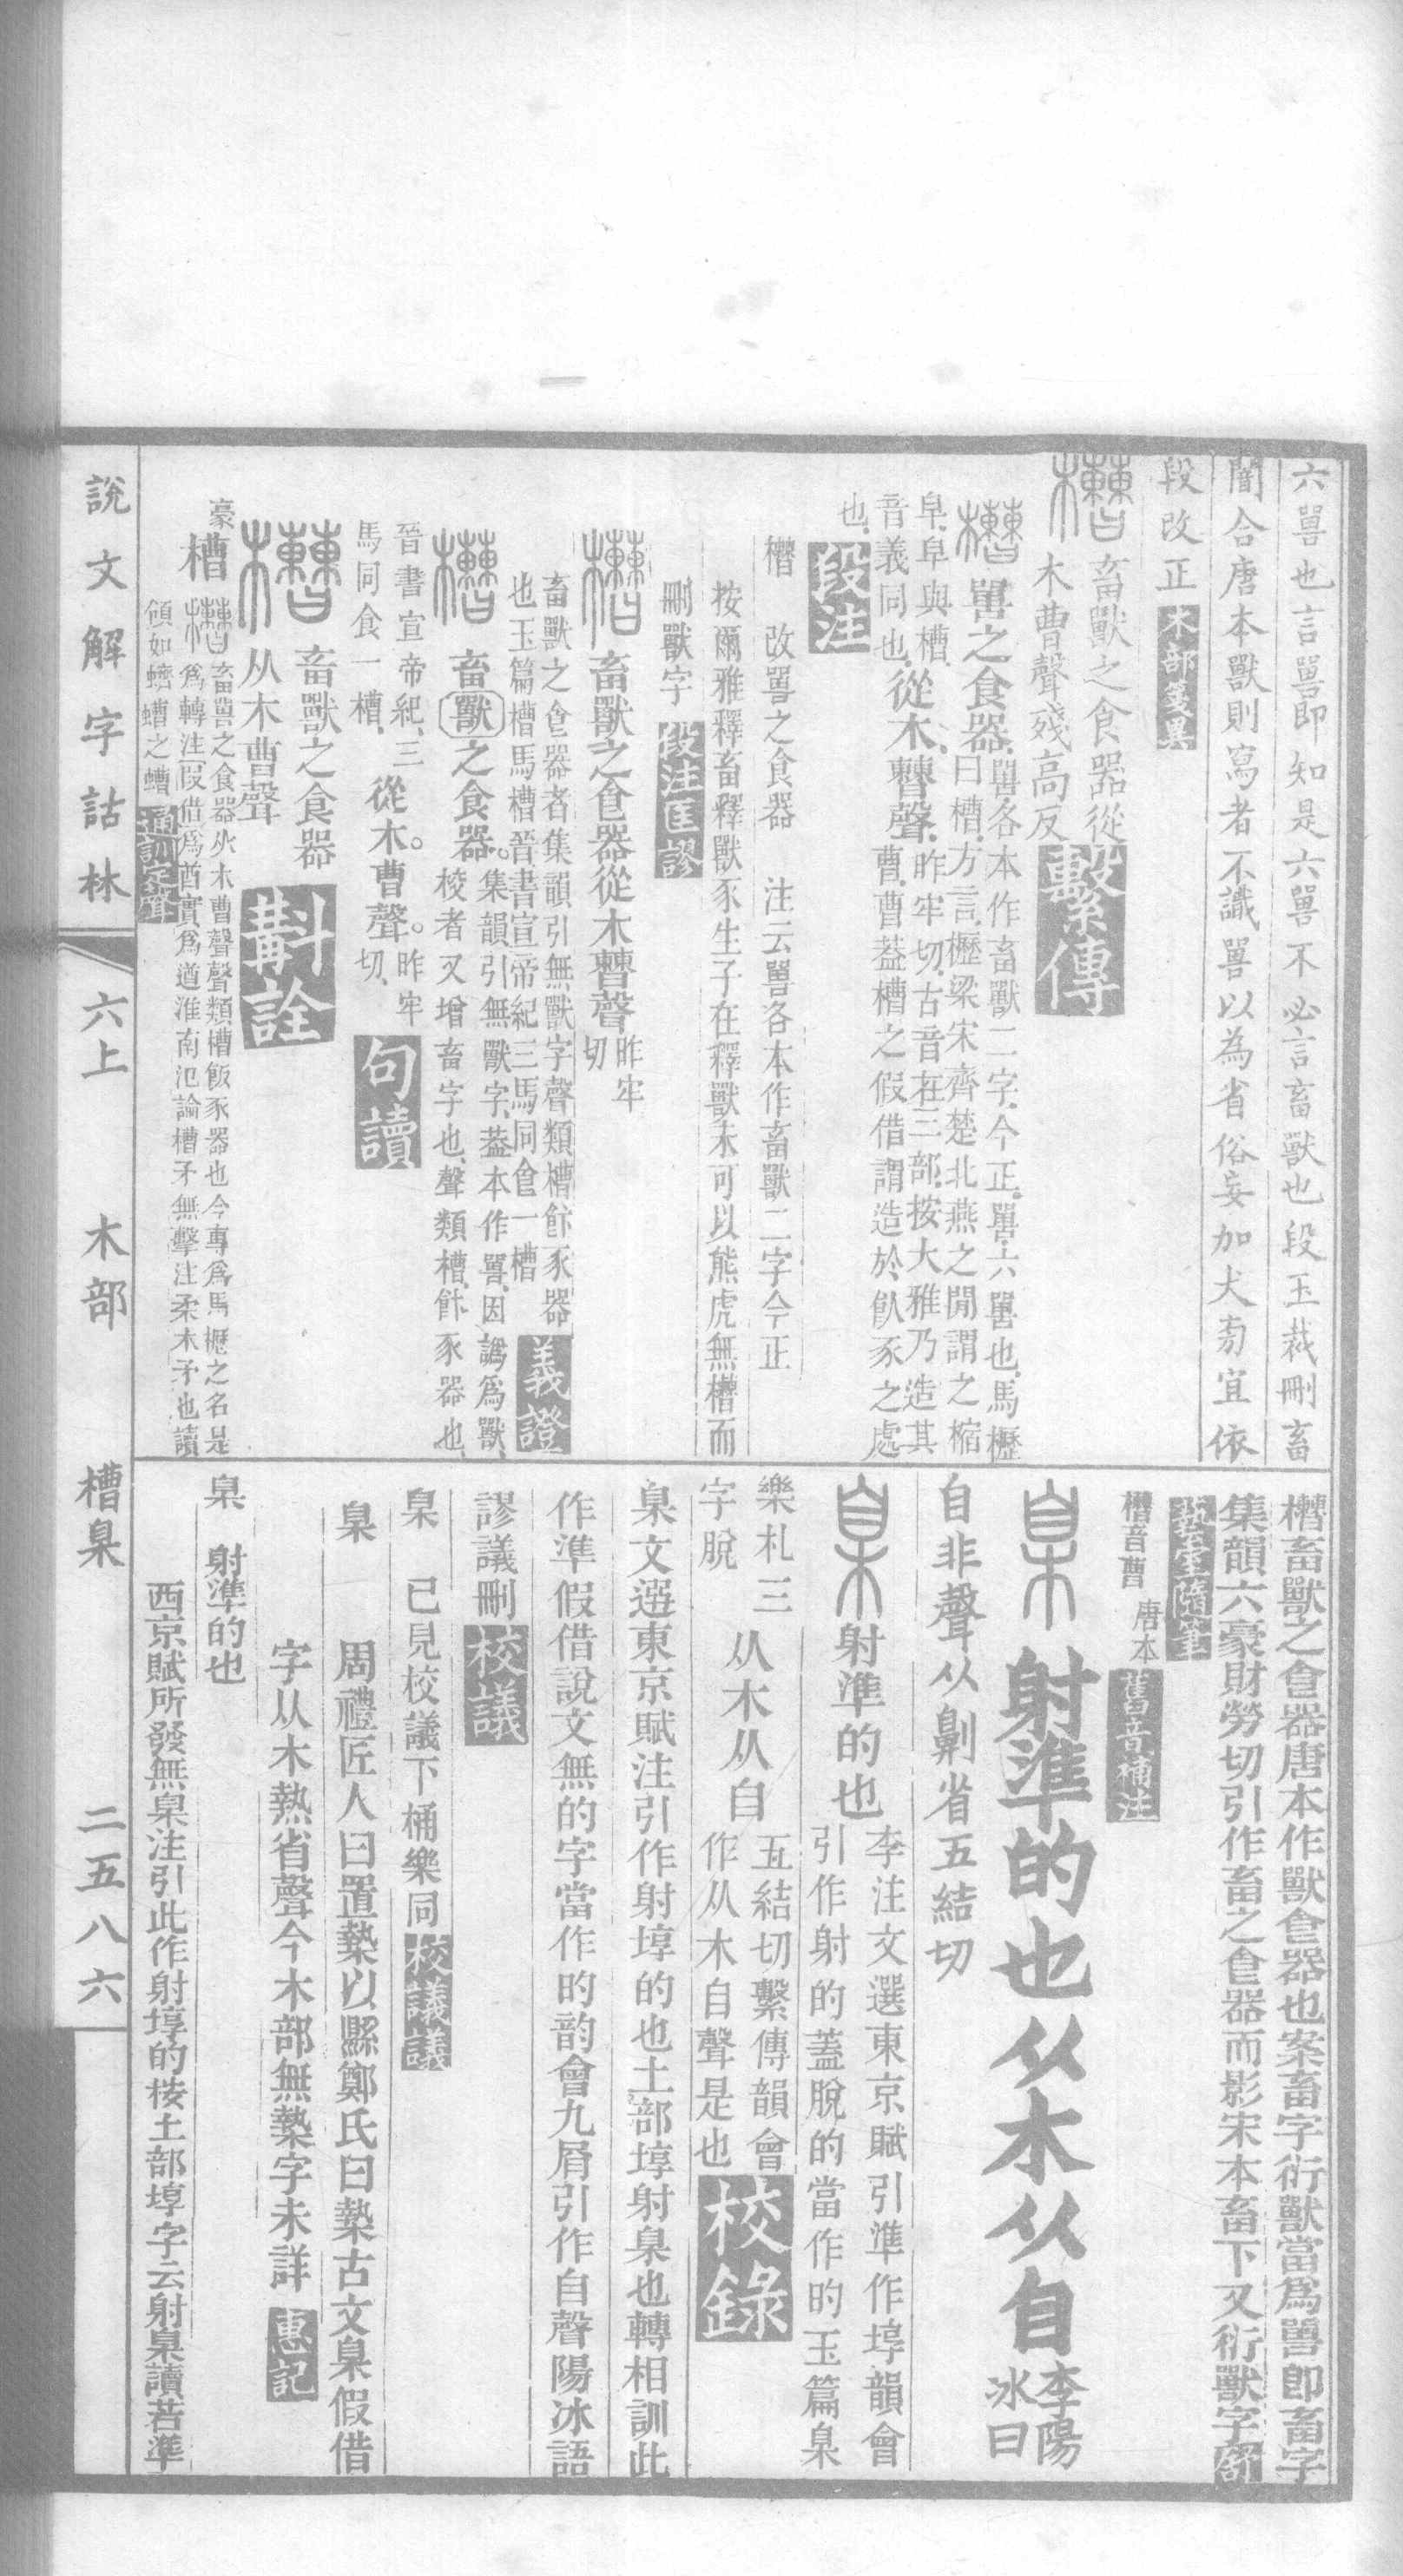 六嘼也言嘼即知是六嘼不必言畜獸也段玉裁刪畜
闇合唐本獸則寫者不識嘼以為省俗妄加犬旁宜依
段改正 木部箋異
畜獸之食器從
木曹聲殘高反 繫傳
嘼之食器
嘼各本作畜獸二字今正嘼六嘼也馬櫪
曰槽方言櫪梁宋齊楚北燕之閒謂之樎
皁皁與槽
音義同也
從木㯥聲
昨牢切古音在三部按大雅乃造其
曹曹葢槽之假借謂造於飤豕之處
也 段注
槽 改嘼之食器 注云嘼各本作畜獸二字今正
按爾雅釋畜釋獸豕生子在釋獸未可以熊虎無槽而
刪獸字 段注匡謬
畜獸之食器從木㯥聲
昨牢
切
畜獸之食器者集韻引無獸字聲類槽飤豕器
也玉篇槽馬槽晉書宣帝紀三馬同食一槽 義證
畜獸之食器
集韻引無獸字葢本作嘼因譌爲獸
校者又增畜字也聲類槽飤豕器也
晉書宣帝紀三
馬同食一槽
從木曹聲
昨牢
切
句讀
畜獸之食器
从木曹聲
斠詮
豪
槽
畜嘼之食器从木曹聲聲類槽飯豕器也今專爲馬櫪之名是
爲轉注叚借爲酋實爲遒淮南氾論槽矛無擊注柔木矛也讀
領如蠐螬之螬 通訓定聲
槽畜獸之食器唐本作獸食器也案畜字衍獸當爲嘼即畜字
集韻六豪財勞切引作畜之食器而影宋本畜下又衍獸字 舒
埶室隨筆
槽音曹 唐本 舊音補注
臬 射準的也从木从自
李陽
冰曰
自非聲从劓省五結切
臬 射準的也
李注文選東京賦引準作埻韻會
引作射的蓋脫的當作旳玉篇臬
樂札三
字脫
从木从自
五結切繫傳韻會
作从木自聲是也
校錄
臬文選東京賦注引作射埻的也土部埻射臬也轉相訓此
作準假借說文無的字當作旳韵會九屑引作自聲陽冰語
謬議刪 校議
臬 已見校議下桶樂同 校議議
臬 周禮匠人曰置槷以縣鄭氏曰槷古文臬假借
字从木熱省聲今木部無槷字未詳 惠記
臬 射準的也
西京賦所發無臬注引此作射埻的桉土部埻字云射臬讀若準
說文解字詁林 六上 木部 槽臬 二五八六